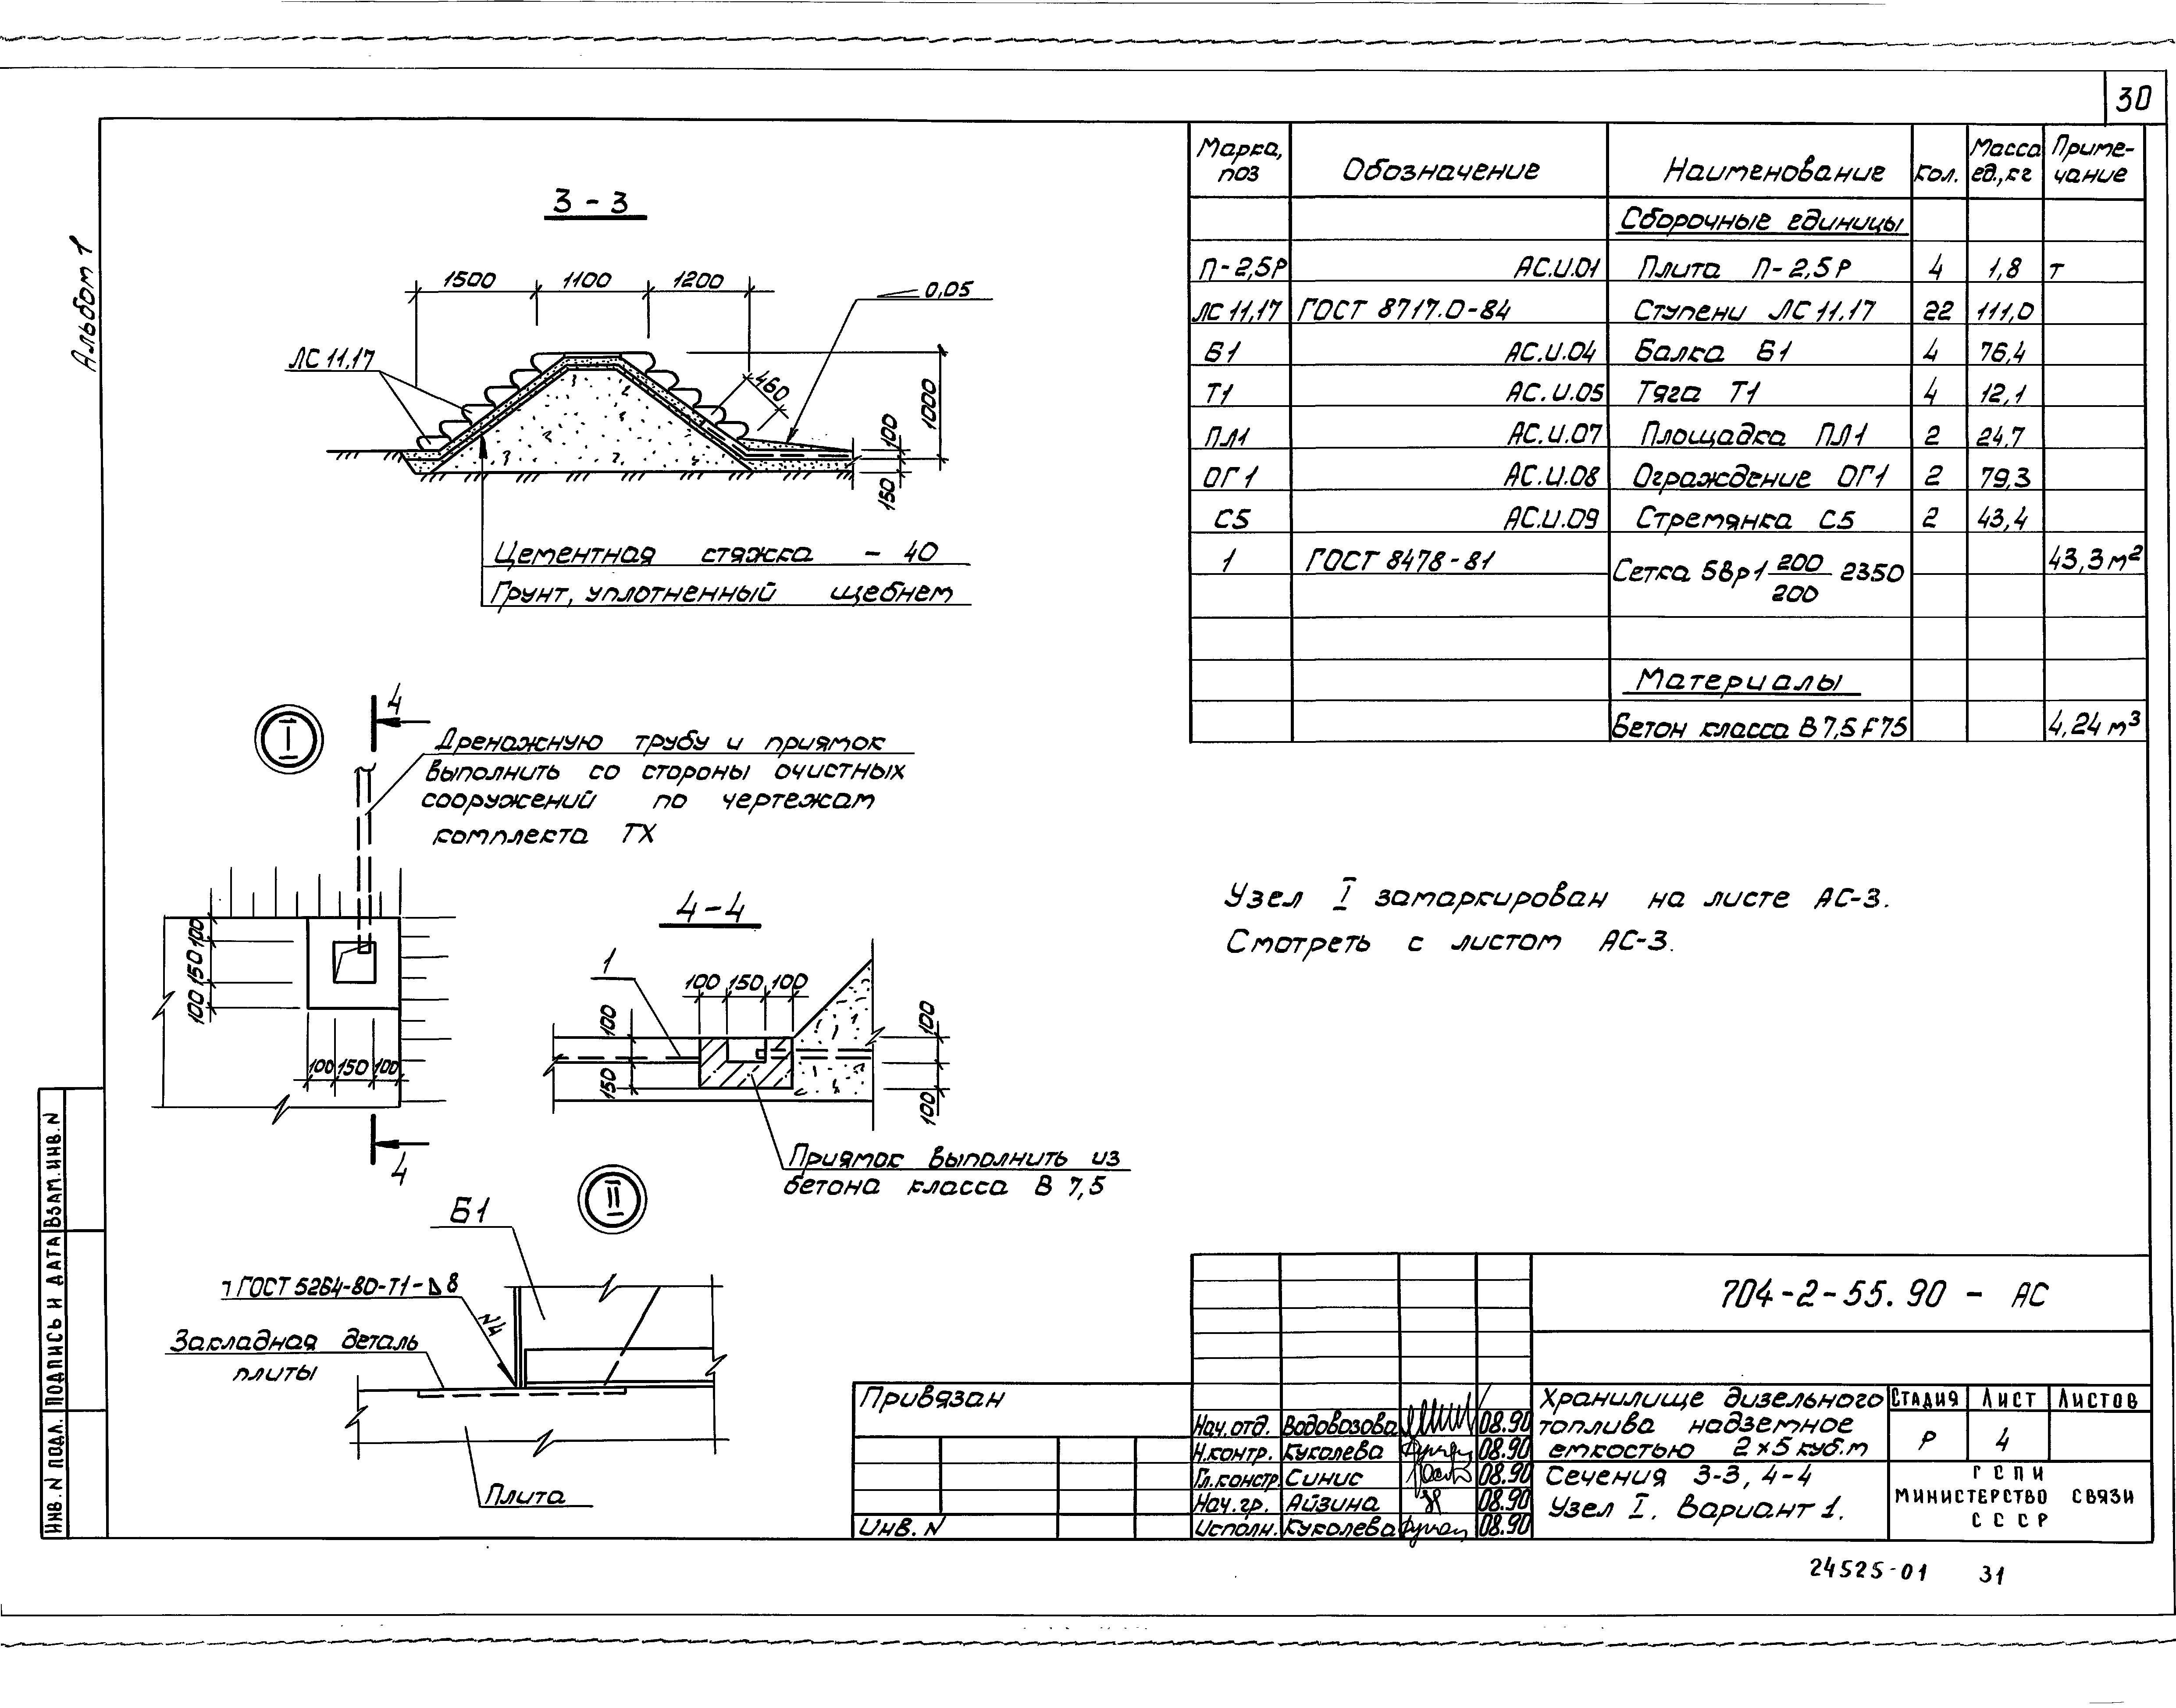 30
Альбом 1
3-3
1500 1100 1200
0,05
ЛС 11.17
460
1000
100
150
Цементная стяжка - 40
Грунт, уплотненный щебнем
Марка, поз Обозначение Наименование Кол. Масса ед., кг Приме-чание
Сборочные единицы
П-2,5Р АС.И.01 Плита П-2,5Р 4 1,8 т
ЛС 11,17 ГОСТ 8717.0-84 Ступени ЛС 11.17 22 111,0
Б1 АС.И.04 Балка Б1 4 76,4
Т1 АС.И.05 Тяга Т1 4 12,1
ПЛ1 АС.И.07 Площадка ПЛ1 2 24,7
ОГ1 АС.И.08 Ограждение ОГ1 2 79,3
С5 АС.И.09 Стремянка С5 2 43,4
1 ГОСТ 8478-81 Сетка 5Вр1 200/200 2350 43,3 м²
Материалы
Бетон класса В 7,5 F75 4,24 м³
I
4
Дренажную трубу и приямок
выполнить со стороны очистных
сооружений по чертежам
комплекта ТХ
100 150 100
100 150 100
4
4-4
1
100 150 100
100
150
100
100
Приямок выполнить из
бетона класса В 7,5
Узел I замаркирован на листе АС-3.
Смотреть с листом АС-3.
II
Б1
ГОСТ 5264-80-Т1-⊿8
N4
Закладная деталь
плиты
Плита
ИНВ. N ПОДЛ. ПОДПИСЬ И ДАТА ВЗАМ. ИНВ. N
Привязан
Инв. N
Нач. отд. Водовозова 08.90
Н.контр. Куколева 08.90
Гл.констр. Синис 08.90
Нач. гр. Айзина 08.90
Исполн. Куколева 08.90
704-2-55.90 - АС
Хранилище дизельного
топлива надземное
емкостью 2x5 куб.м
Стадия Лист Листов
Р 4
Сечения 3-3, 4-4
Узел I. Вариант 1.
ГСПИ
МИНИСТЕРСТВО СВЯЗИ
СССР
24525-01 31